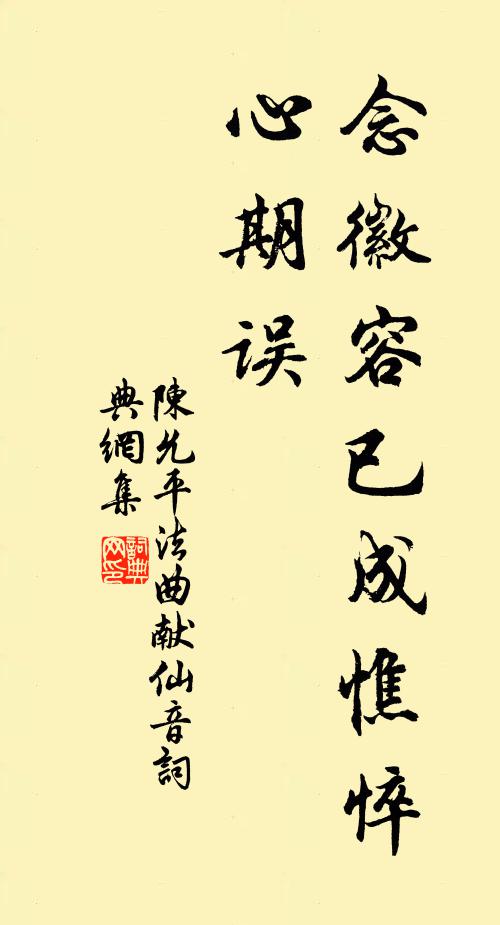 念徽容已成憔悴
心期误
陳允平法曲献仙音詞
典網集
詞典
网印